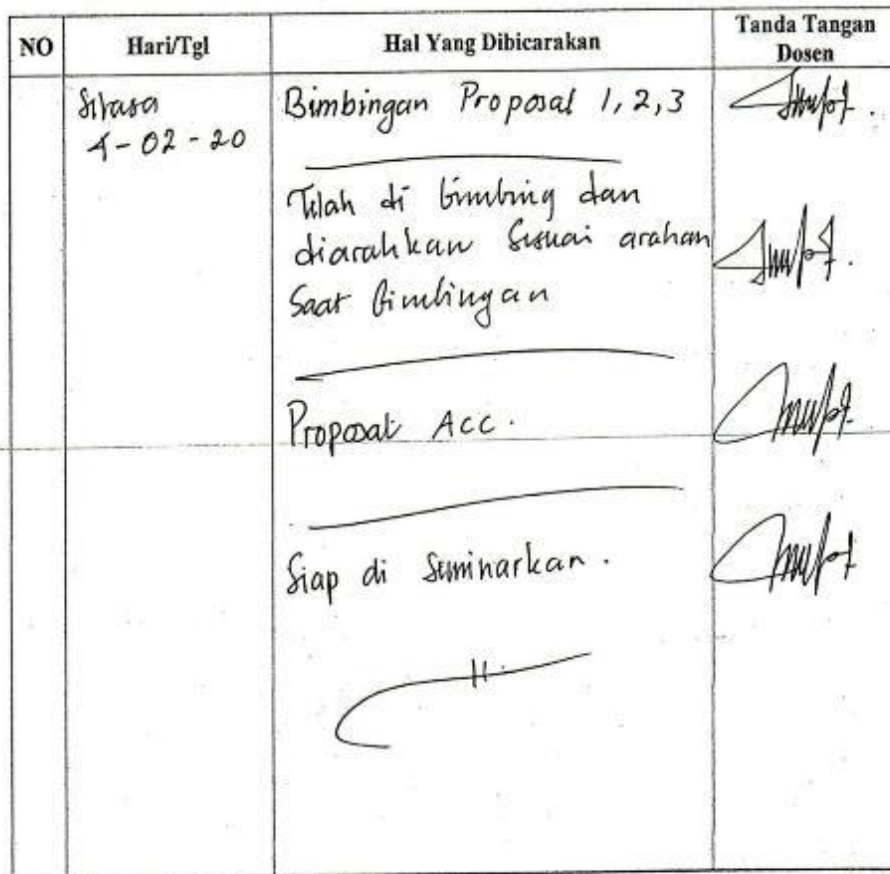 NO Hari/Tgl Hal Yang Dibicarakan Tanda Tangan
Dosen
Selasa Bimbingan Proposal 1, 2, 3
4-02-20
Telah di bimbing dan
diarahkan sesuai arahan
Saat bimbingan
Proposal Acc.
Siap di seminarkan.